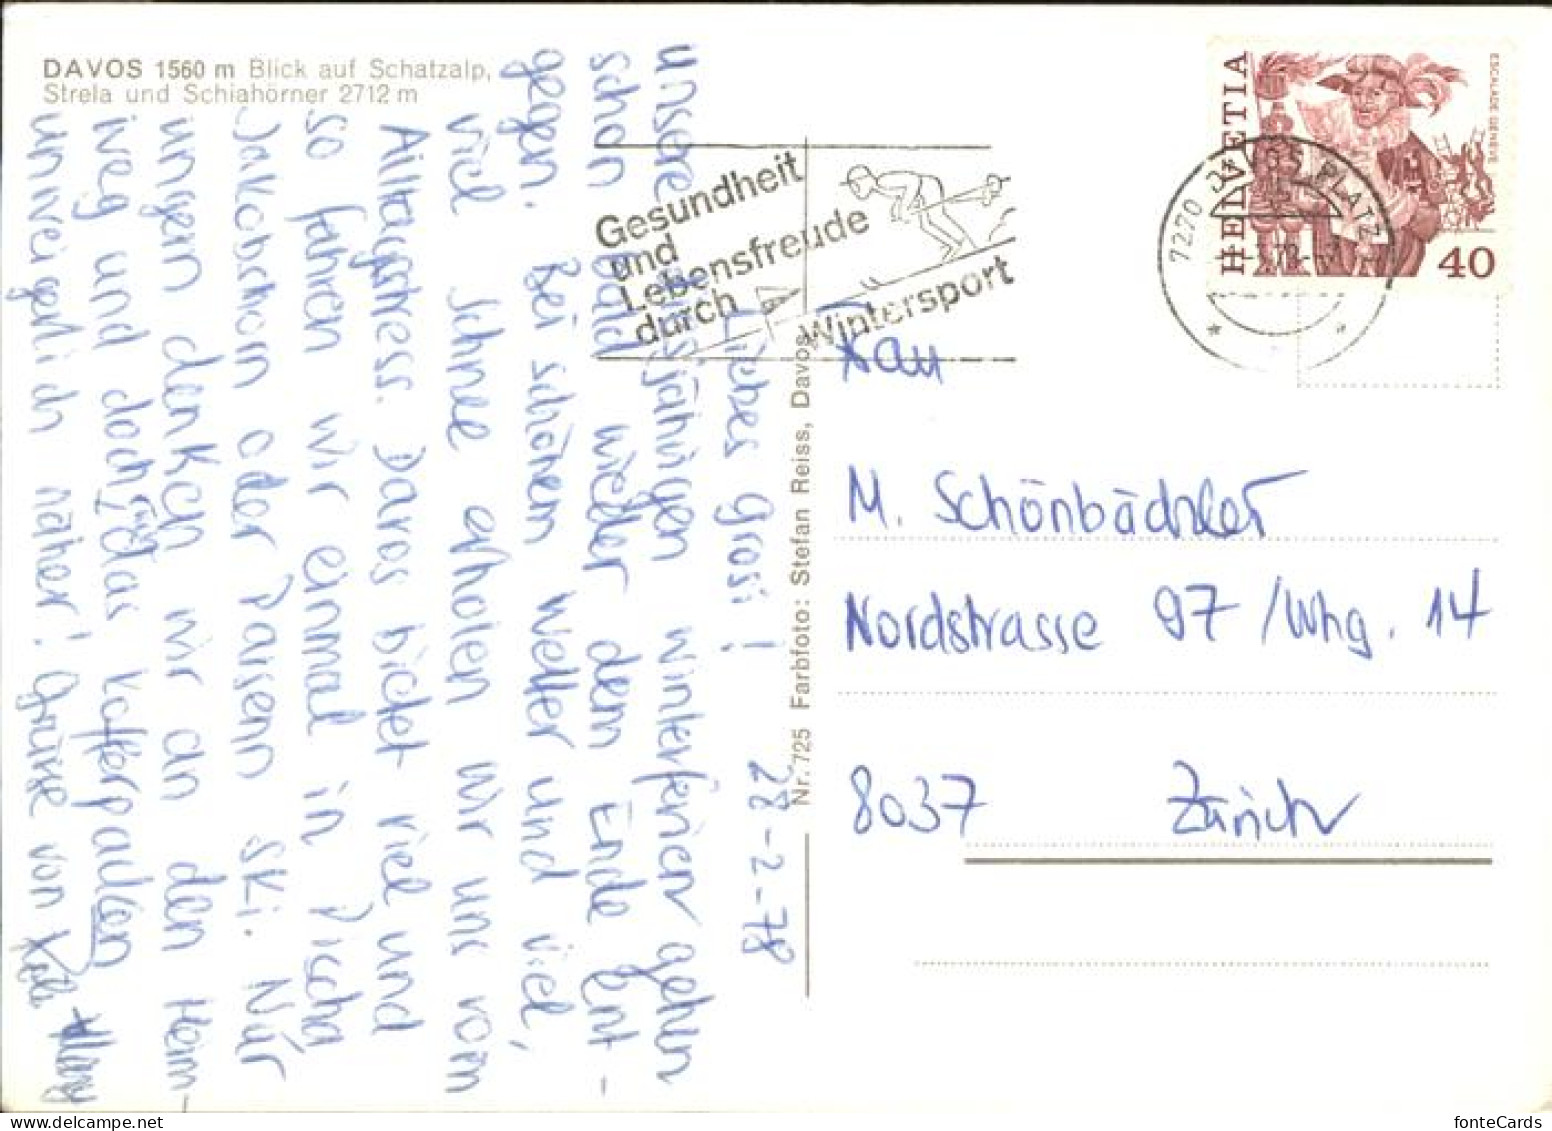 DAVOS 1560 m Blick auf Schatzalp,
Strela und Schiahörner 2712 m
HELVETIA
ESCALADE GENÈVE
40
7270 DAVOS PLATZ
Gesundheit
und
Lebensfreude
durch
Wintersport
Nr. 725 Farbfoto: Stefan Reiss, Davos
28-2-78
Liebes Grosi!
unsere diesjährigen Winterferien gehen
schon bald wieder dem Ende ent-
gegen. Bei schönem Wetter und viel,
viel Schnee erholen wir uns vom
Alltagsstress. Davos bietet viel und
so fahren wir einmal in Pischa
Jakobshorn oder Parsenn Ski. Nur
ungern denken wir an den Heim-
weg und doch, das Kofferpacken
unweigerlich näher! Grüsse von
Frau
M. Schönbächler
Nordstrasse 97 / Whg. 14
8037 Zürich
fonteCards